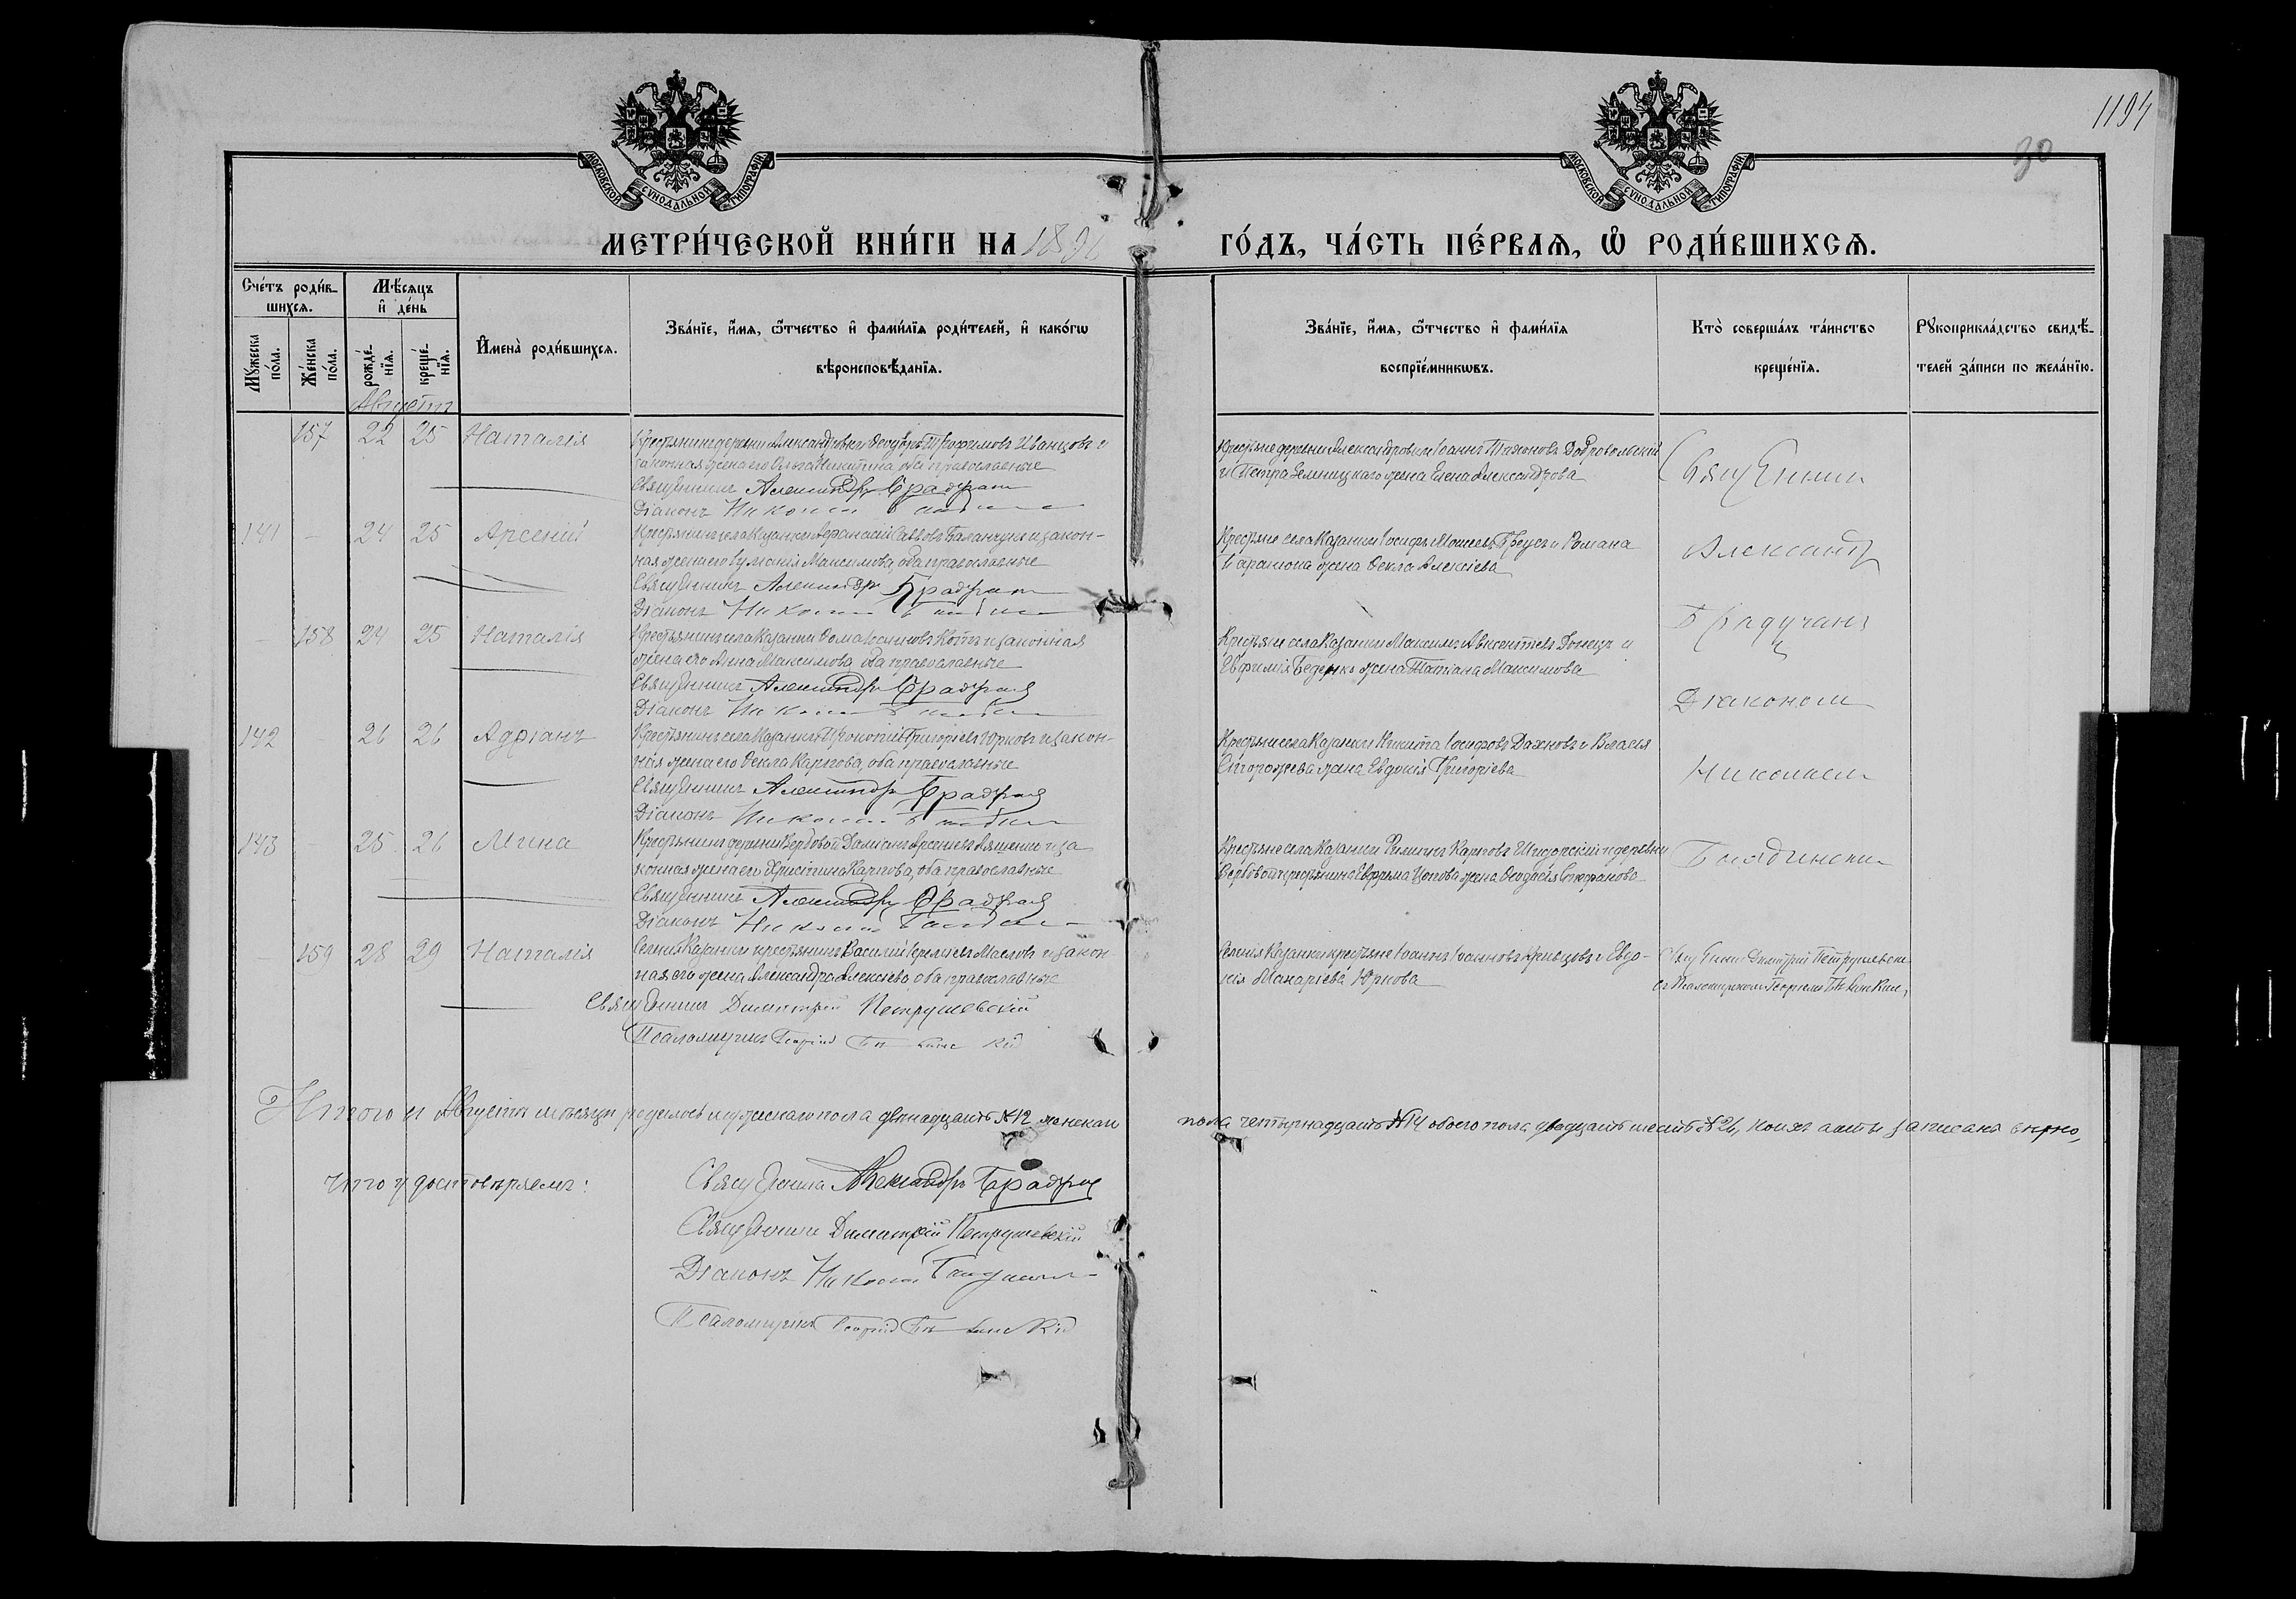 1194
30
МОСКОВСКОЙ СУНОДАЛЬНОЙ ТИПОГРАФІИ
МОСКОВСКОЙ СУНОДАЛЬНОЙ ТИПОГРАФІИ
МЕТРИ́ЧЕСКОЙ КНИ́ГИ НА 189
ГО́ДЪ, ЧА́СТЬ ПЕ́РВАѦ, Ѡ҆ РОДИ́ВШИХСѦ.
Счéтъ роди́в-
шихсѧ.
Мꙋ́жеска по́ла.
Же́нска по́ла.
Мѣ́сѧцъ
и҆ де́нь
рожде́-нїѧ.
креще́-нїѧ.
И҆мена̀ роди́вшихсѧ.
Зва́нїе, и҆́мѧ, ѻ҆́тчество и҆ фами́лїѧ роди́телей, и҆ како́гѡ
вѣроисповѣ́данїѧ.
Зва́нїе, и҆́мѧ, ѻ҆́тчество и҆ фами́лїѧ
воспрїе́мникѡвъ.
Кто̀ соверша́лъ та́инство
креще́нїѧ.
Рꙋкоприкла́дство свидѣ́-
телей за́писи по жела́нїю.
Августъ
157 22 25 Наталія
Крестьянинъ деревни Александровки Ѳеодоръ Трофимовъ Иванцовъ и
законная жена его Ольга Никитина, оба православные
Священникъ Александръ Брадучанъ
Діаконъ Николай
Крестьяне деревни Александровки Іоаннъ Тихоновъ Добровольскій
и Петра Зелницкаго жена Елена Александрова
Священник
141 – 24 25 Арсеній
Крестьянинъ села Казанки Аѳанасій Саввовъ Баландукъ и закон-
ная жена его Гулянія Максимова, оба православные
Священникъ Александръ Брадучан
Діаконъ Николай
Крестьяне села Казанки Іосифъ Моисеевъ Греусъ и Романа
жена Ѳекла Алексіева
Александр
– 158 24 25 Наталія
Крестьянинъ села Казанки Ѳома Іоанновъ Котъ и законная
жена его Анна Максимова, оба православные
Священникъ Александръ Брадучан
Діаконъ Николай
Крестьяне села Казанки Максимъ Авксентіевъ Донецъ и
Евфимія Беденко жена Татіана Максимова
Брадучанъ
Діаконом
142 – 26 26 Адріанъ
Крестьянинъ села Казанки Прокопій Григоріевъ Юрковъ и закон-
ная жена его Ѳекла Карпова, оба православные
Священникъ Александръ Брадучан
Діаконъ Николай
Крестьяне села Казанки Никита Іосифовъ Дахновъ и Власія
Сторожева жена Евдокія Григоріева
Николаем
143 – 25 26 Мина
Крестьянинъ деревни Вербовой Даміанъ Арсеніевъ Ляшенко и за
конная жена его Христина Карпова, оба православные
Священникъ Александръ Брадучан
Діаконъ Николай
Крестьяне села Казанки Филиппъ Карповъ и деревни
Вербовой крестьянина Ефрема Попова жена Ѳеодосія Стефанова
– 159 28 29 Наталія
Селенія Казанки крестьянинъ Василій Масловъ и закон
ная его жена Александра Алексіева, оба православные
Священникъ Димитрій Петрушевскій
Псаломщикъ Георгій
Селенія Казанки крестьяне Іоаннъ Іоанновъ Кривцовъ и Евдо-
кія Макаріева Юркова
Священник Димитрій Петрушевскій
съ Псаломщиком Георгіем
Итого въ Августѣ мѣсяцѣ родилось мужескаго пола двѣнадцать №12 женскаго
пола четырнадцать №14 обоего пола двадцать шесть №26, коихъ акты записаны вѣрно,
что и удостовѣряемъ:
Священникъ Александръ Брадучан
Священникъ Димитрій Петрушевскій
Діаконъ Николай
Псаломщикъ Георгій